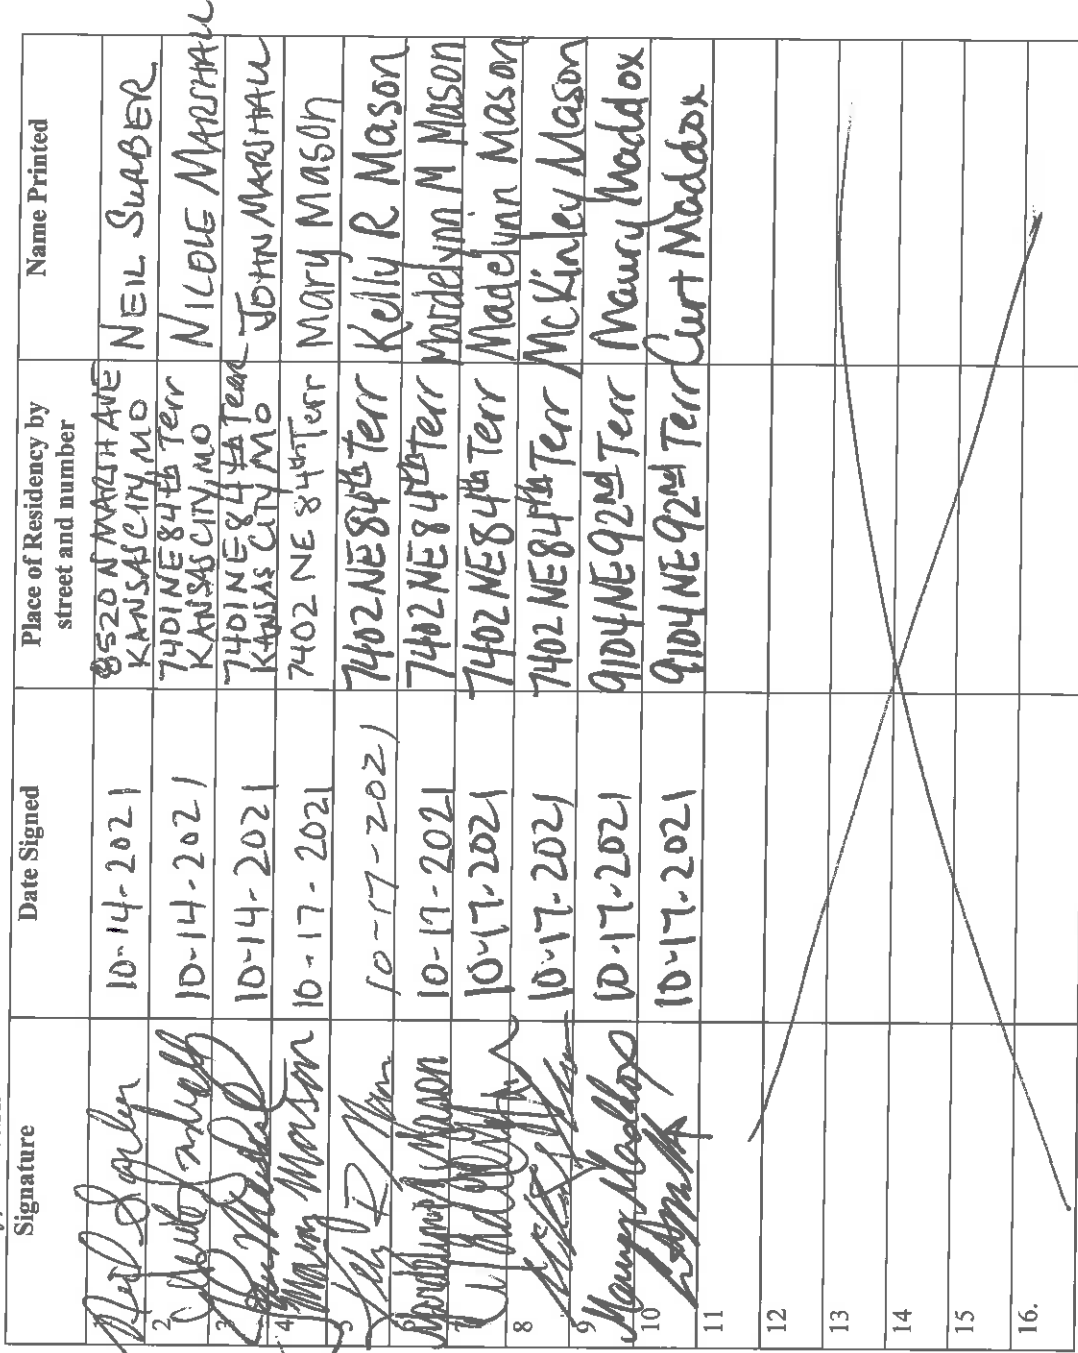 Signature Date Signed Place of Residency by street and number Name Printed
1 10-14-2021 8520 N MARSH AVE KANSAS CITY, MO NEIL
2 10-14-2021 7401 NE 84th Terr KANSAS CITY, MO NICOLE MARSHALL
3 10-14-2021 7401 NE 84th Terr KANSAS CITY, MO JOHN MARSHALL
4 Mary Mason 10-17-2021 7402 NE 84th Terr Mary Mason
5 10-17-2021 7402 NE 84th Terr Kelly R Mason
6 Mardelynn Mason 10-17-2021 7402 NE 84th Terr Mardelynn M Mason
7 10-17-2021 7402 NE 84th Terr Madelynn Mason
8 10-17-2021 7402 NE 84th Terr McKinley Mason
9 Maury Maddox 10-17-2021 9104 NE 92nd Terr Maury Maddox
10 10-17-2021 9104 NE 92nd Terr Curt Maddox
11
12
13
14
15
16.